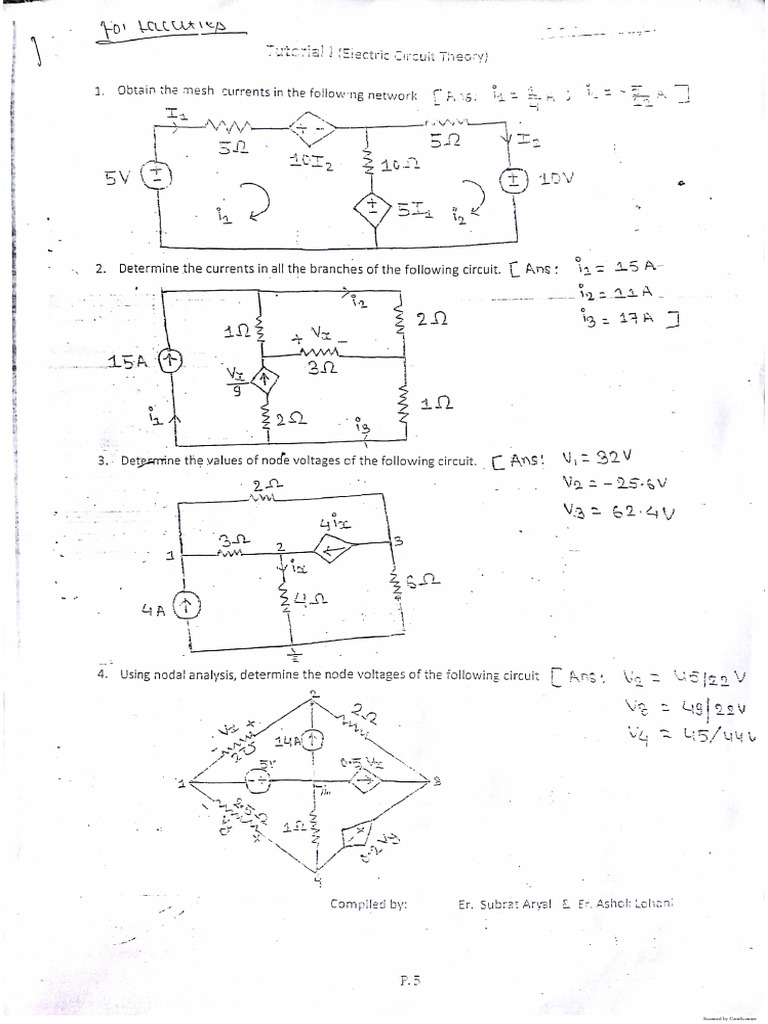 For
Tutorial 1 (Electric Circuit Theory)
1. Obtain the mesh currents in the following network [Ans: i1 = 1/4 A ;
I1
5Ω
10I2
5Ω
I2
5V
10Ω
10V
i1
5I1
i2
2. Determine the currents in all the branches of the following circuit. [Ans: i1 = 15A
i2 = 11A
i3 = 17A ]
i2
1Ω
+ Vx −
2Ω
15A
3Ω
Vx/9
1Ω
i1
2Ω
i3
3. Determine the values of node voltages of the following circuit. [Ans: V1 = 32V
V2 = −25.6V
V3 = 62.4V
2Ω
4ix
1
3Ω
2
3
ix
4Ω
6Ω
4A
4. Using nodal analysis, determine the node voltages of the following circuit [Ans: V2 = 45/22 V
V3 = 49/22V
V4 = 45/44V
2
− Vx +
2Ω
14A
0.5Vx
1
3
1Ω
0.2Vy
4
Compiled by: Er. Subrat Aryal & Er. Ashok Lohani
P. 5
Scanned by CamScanner